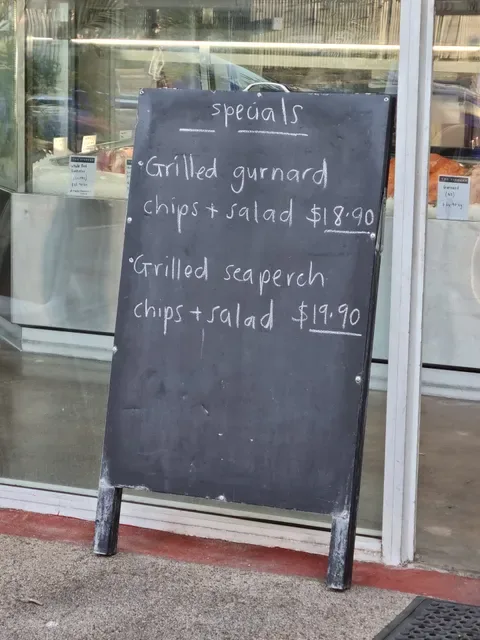 specials
•Grilled gurnard
chips + salad $18.90
•Grilled seaperch
chips + salad $19.90